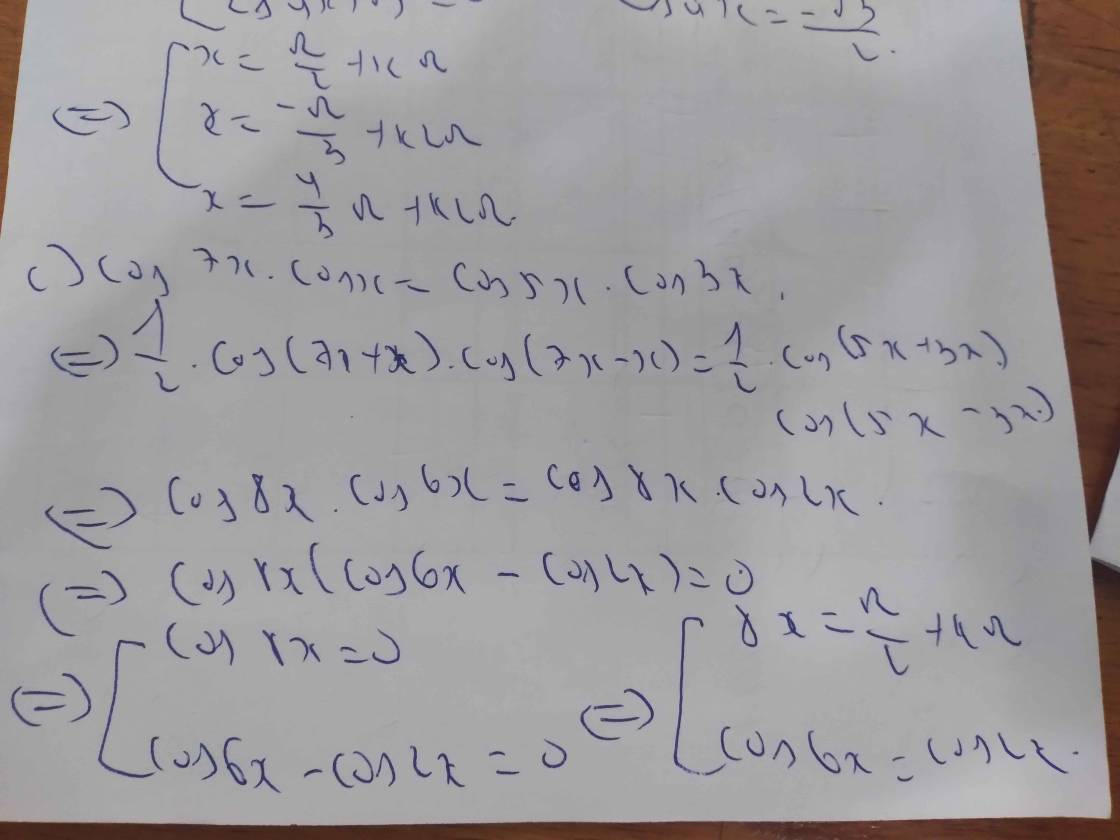 sin 4x = -√3/2
⇔ [ x = π/2 + kπ
x = -π/3 + k2π
x = 4/3 π + k2π.
c) cos 7x . cos x = cos 5x . cos 3x .
⇔ 1/2 . cos (7x + x) . cos (7x - x) = 1/2 . cos (5x + 3x)
cos (5x - 3x)
⇔ cos 8x . cos 6x = cos 8x . cos 2x .
⇔ cos 8x (cos 6x - cos 2x) = 0
⇔ [ cos 8x = 0 ⇔ [ 8x = π/2 + kπ
cos 6x - cos 2x = 0 cos 6x = cos 2x .